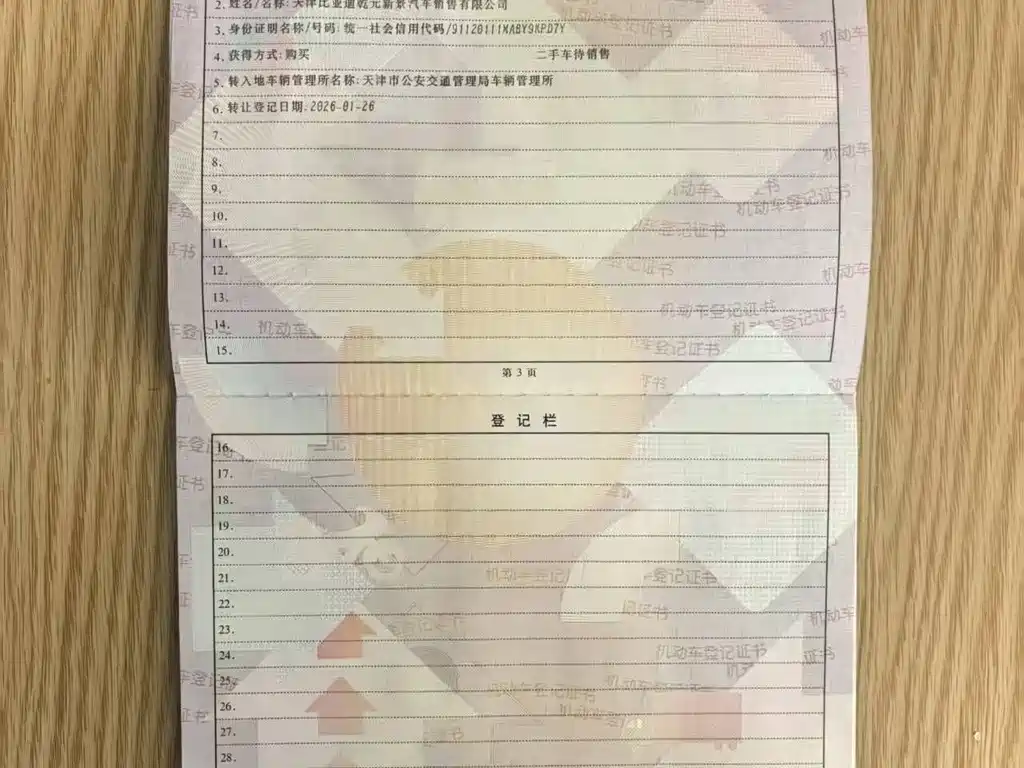 2. 姓名/名称:天津比亚迪乾元新景汽车销售有限公司
3. 身份证明名称/号码:统一社会信用代码/91120111MABY9KPD7Y
4. 获得方式:购买 二手车待销售
5. 转入地车辆管理所名称:天津市公安交通管理局车辆管理所
6. 转让登记日期:2026-01-26
7.
8.
9.
10.
11.
12.
13.
14.
15.
第 3 页
登 记 栏
16.
17.
18.
19.
20.
21.
22.
23.
24.
25.
26.
27.
28.
机动车登记证书